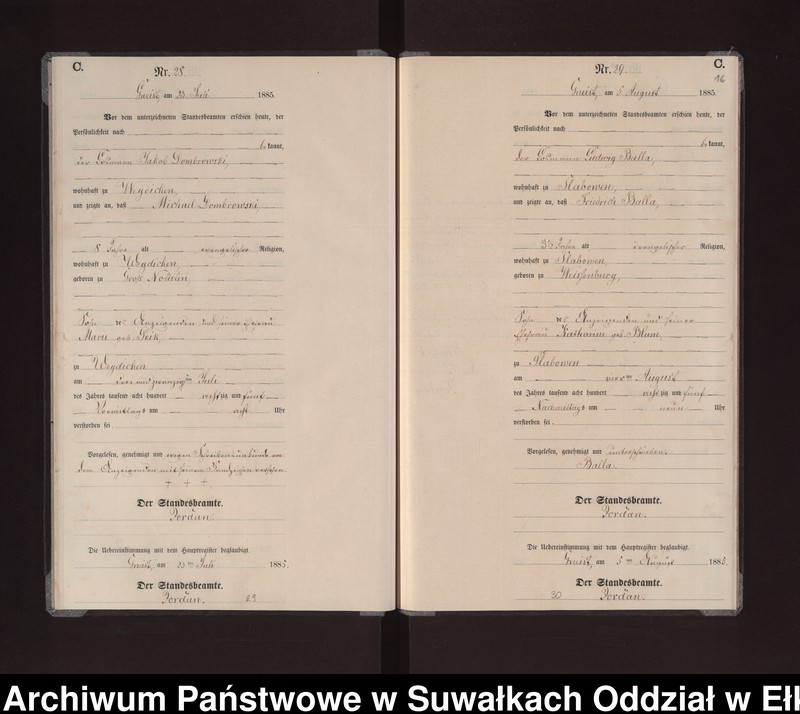 C.
Nr. 28.
Gneist, am 23. Juli 1885.
Vor dem unterzeichneten Standesbeamten erschien heute, der
Persönlichkeit nach
be kannt,
der Losmann Jakob Dombrowski,
wohnhaft zu Weydicken,
und zeigte an, daß Michael Dombrowski,
8 Jahre alt evangelischer Religion,
wohnhaft zu Weydicken
geboren zu Groß
Sohn des Anzeigenden und seiner Ehefrau
Marie geb.
zu Weydicken
am drei und zwanzigsten Juli
des Jahres tausend acht hundert achtzig und fünf
Vormittags um acht Uhr
verstorben sei
Vorgelesen, genehmigt und wegen Schreibensunkunde von
dem Anzeigenden mit seinem Handzeichen versehen.
+ + +
Der Standesbeamte.
Jordan.
Die Uebereinstimmung mit dem Hauptregister beglaubigt.
Gneist, am 23ten Juli 1885.
Der Standesbeamte.
Jordan.
29
C.
16
Nr. 29
Gneist, am 5. August 1885.
Vor dem unterzeichneten Standesbeamten erschien heute, der
Persönlichkeit nach
be kannt,
der Losmann Ludwig Balla,
wohnhaft zu Slabowen,
und zeigte an, daß Friedrich Balla,
3½ Jahre alt evangelischer Religion,
wohnhaft zu Slabowen
geboren zu Weissenburg,
Sohn des Anzeigenden und seiner
Ehefrau Katharine geb. Blum,
zu Slabowen
am vierten August
des Jahres tausend acht hundert achtzig und fünf
Nachmittags um neun Uhr
verstorben sei.
Vorgelesen, genehmigt und unterschrieben.
Balla.
Der Standesbeamte.
Jordan.
Die Uebereinstimmung mit dem Hauptregister beglaubigt.
Gneist, am 5ten August 1885.
Der Standesbeamte.
30 Jordan.
Archiwum Państwowe w Suwałkach Oddział w Ełk